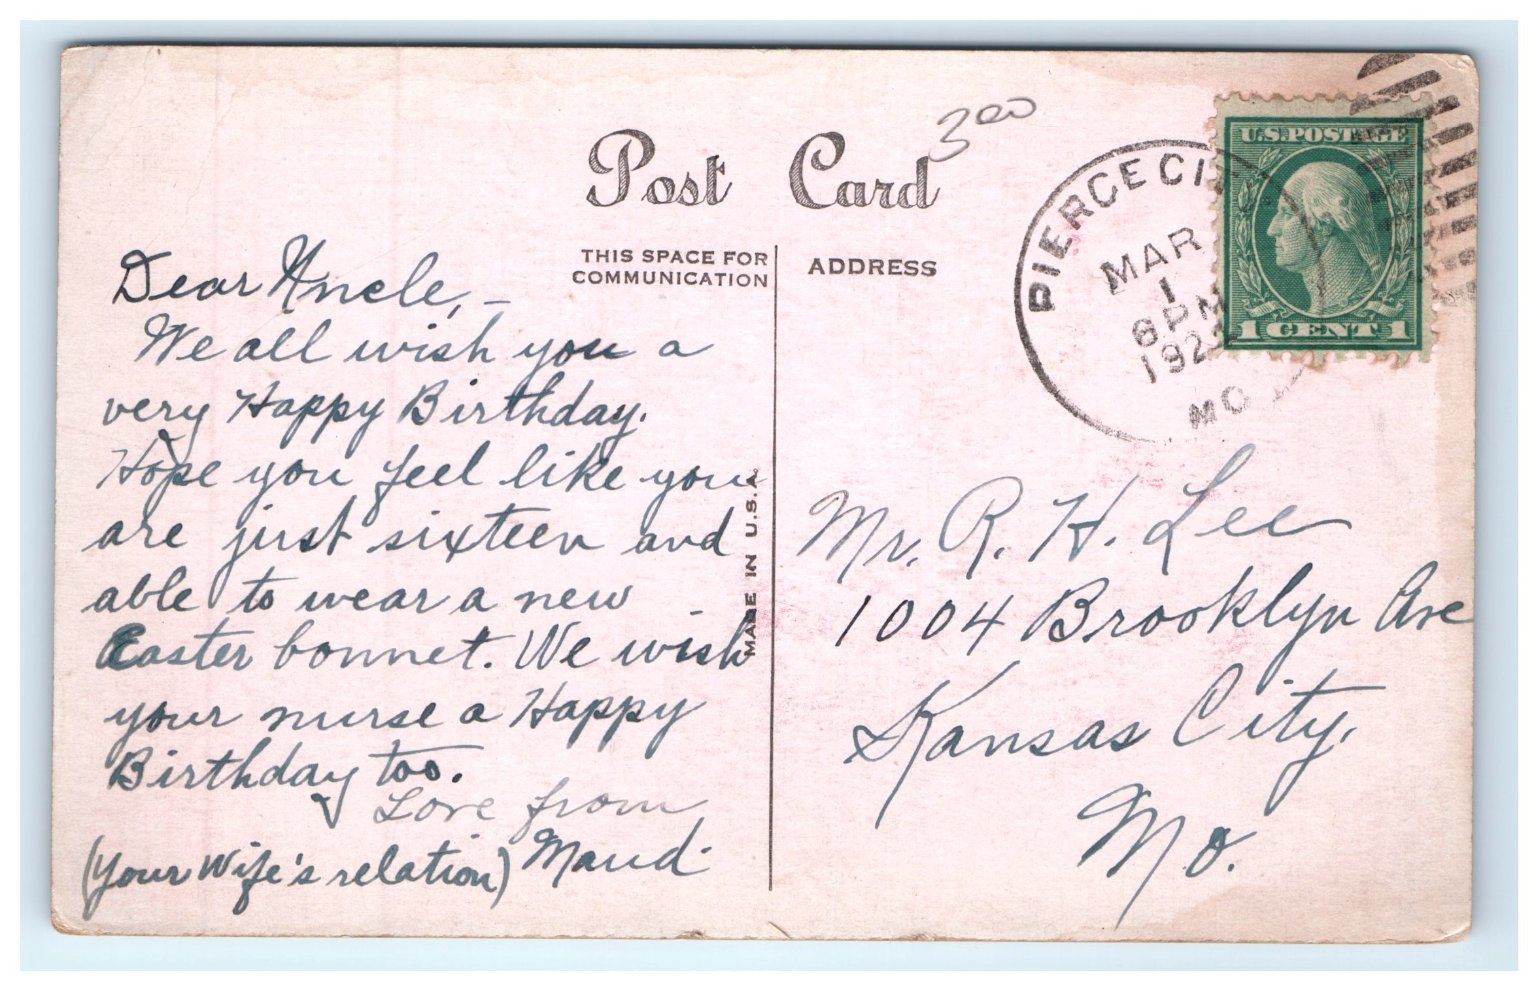 Post Card
300
THIS SPACE FOR
COMMUNICATION
ADDRESS
MADE IN U.S.A.
PIERCE CI
MAR
1
6 PM
192
MO
U.S. POSTAGE
1 CENT 1
Dear Uncle, -
We all wish you a
very Happy Birthday.
Hope you feel like you
are just sixteen and
able to wear a new
Easter bonnet. We wish
your nurse a Happy
Birthday too.
Love from
(Your Wife's relation) Maud.
Mr. R. H. Lee
1004 Brooklyn Ave
Kansas City,
Mo.